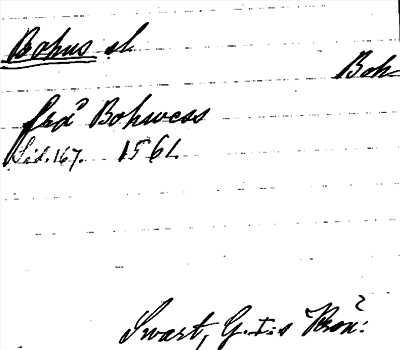 Bohus sl.
Boh-
frå Bohwess
Sid. 167. 1561.
Swart, G. I:s Krön: